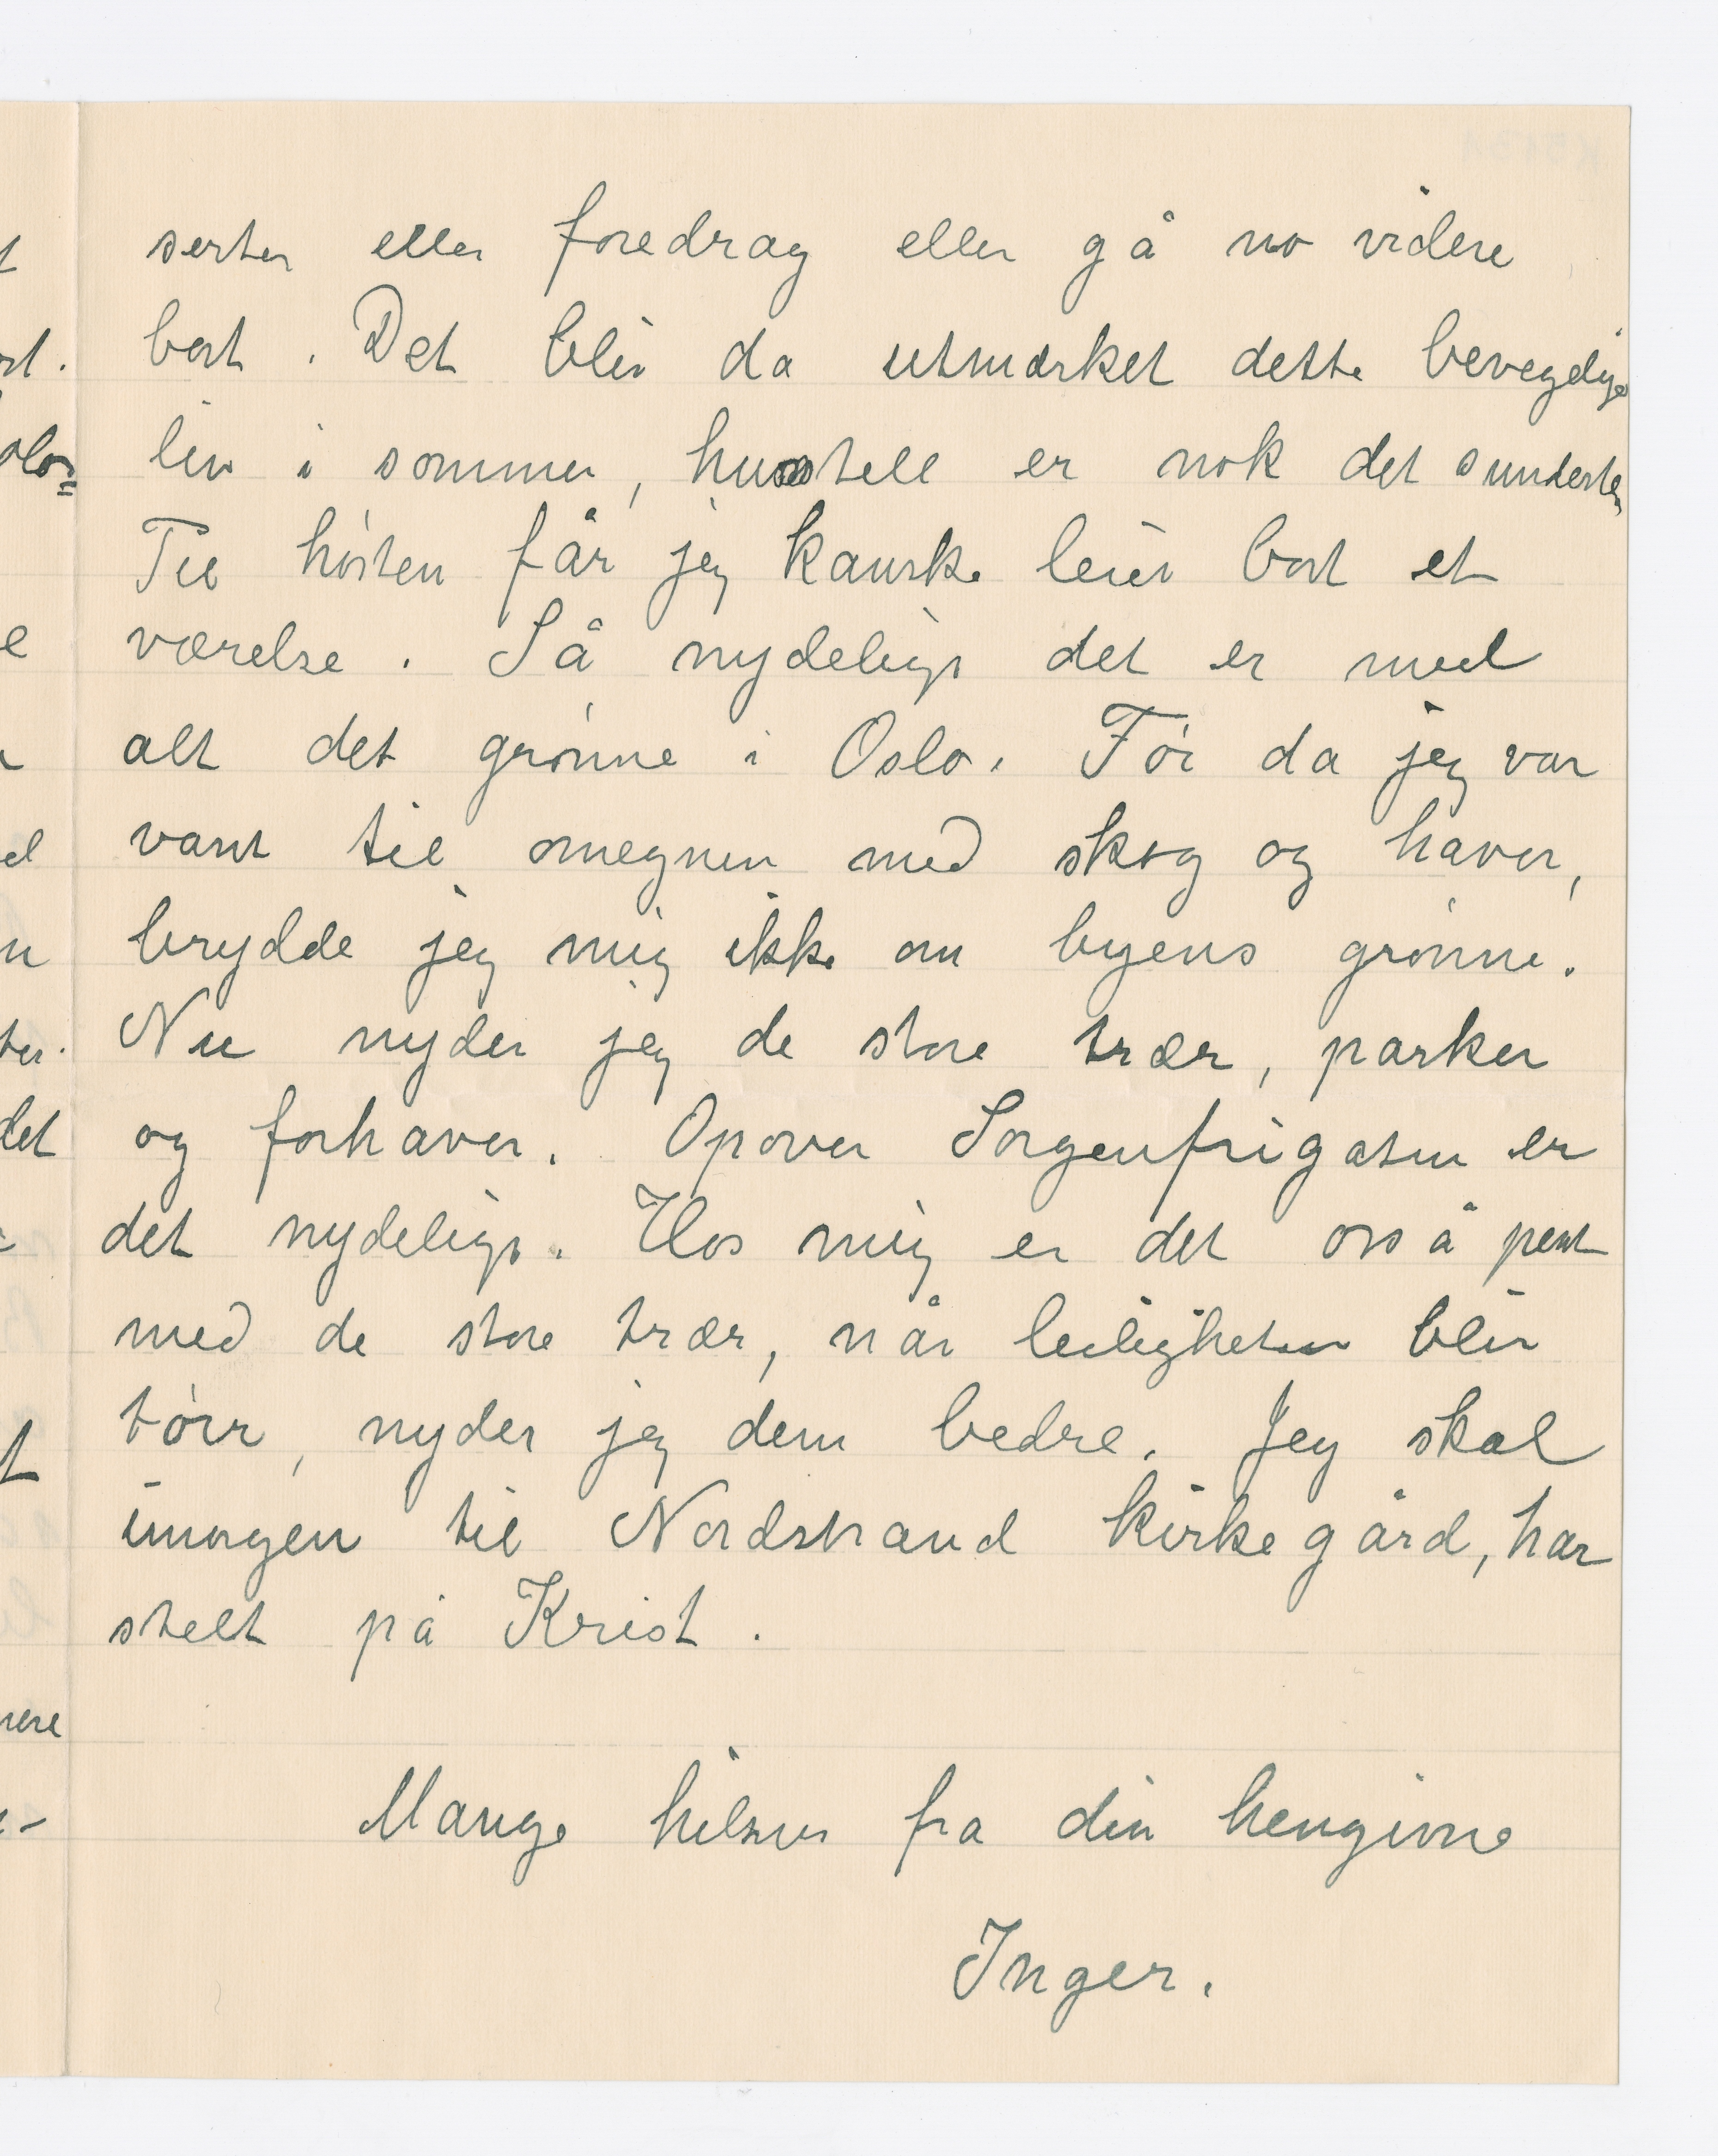 serter eller foredrag eller gå no videre
bort. Det blir da utmerket dette bevegelige
liv i sommer, husstell er nok det sundeste,
Til høsten får jeg kanske leiet bort et
værelse. Så nydelig det er med
alt det grønne i Oslo. Før da jeg var
vant til omegnen med skog og haver,
brydde jeg mig ikke om byens grønne.
Nu nyder jeg de store trær, parker
og forhaver. Opover Sorgenfrigaten er
det nydelig. Hos mig er det også pent
med de store trær, når leiligheten blir
tørr, nyder jeg dem bedre. Jeg skal
imorgen til Nordstrand kirkegård, har
stelt på Krist.
Mange hilsner fra din hengivne
Inger.